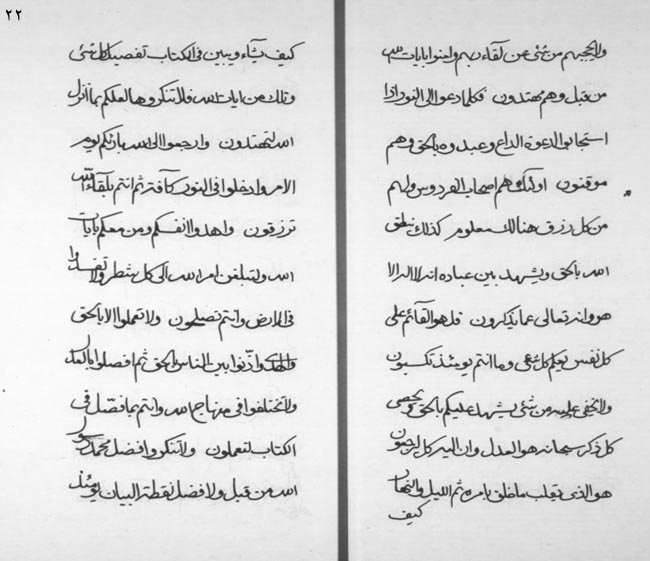 ولا يحجبهم من شئ عن لقاء ربهم وامنوا بايات الله
من قبل وهم مهتدون فكلما دعوا الى النور اذا
استجابوا الدعوة الداع وعبدوه بالحق وهم
موقنون اولئك هم اصحاب الفردوس ولهم
من كل رزق هنالك معلوم كذلك ينطق
الله بالحق ويشهد بين عباده انه لا اله الا
هو وانه تعالى عما يذكرون قل هو القائم على
كل نفس يعلم كل شئ وما انتم يومئذ تكسبون
ولا يخفى عليه من شئ يشهد عليكم بالحق ويحصى
كل ذكر سبحانه هو العدل وان اليه كل يرجعون
هو الذى يقلب ما خلق بامره ثم الليل والنهار
كيف
٢٢
كيف يشاء ويبين فى الكتاب تفصيل كل شئ
وتلك من ايات الله فلا تنكروها لعلكم بما انزل
الله لتهتدون وارجعوا الى الله بارئكم يوم
الامر وادخلوا فى النور كآفة ثم انتم بلقاء الله
ترزقون واهدوا انفسكم ومن معكم بايات
الله ولتبلغن امر الله الى كل شطر ولا تفسدوا
فى الارض وانتم تصلحون ولا تعملوا الا بالحق
والهدى واذنوا بين الناس بالحق ثم افصلوا بالعدل
ولا تختلفوا فى منهاج الله وانتم بما فصل فى
الكتاب لتعملون ولا تنكروا فضل محمد رسول
الله من قبل ولا فضل نقطة البيان يومئذ